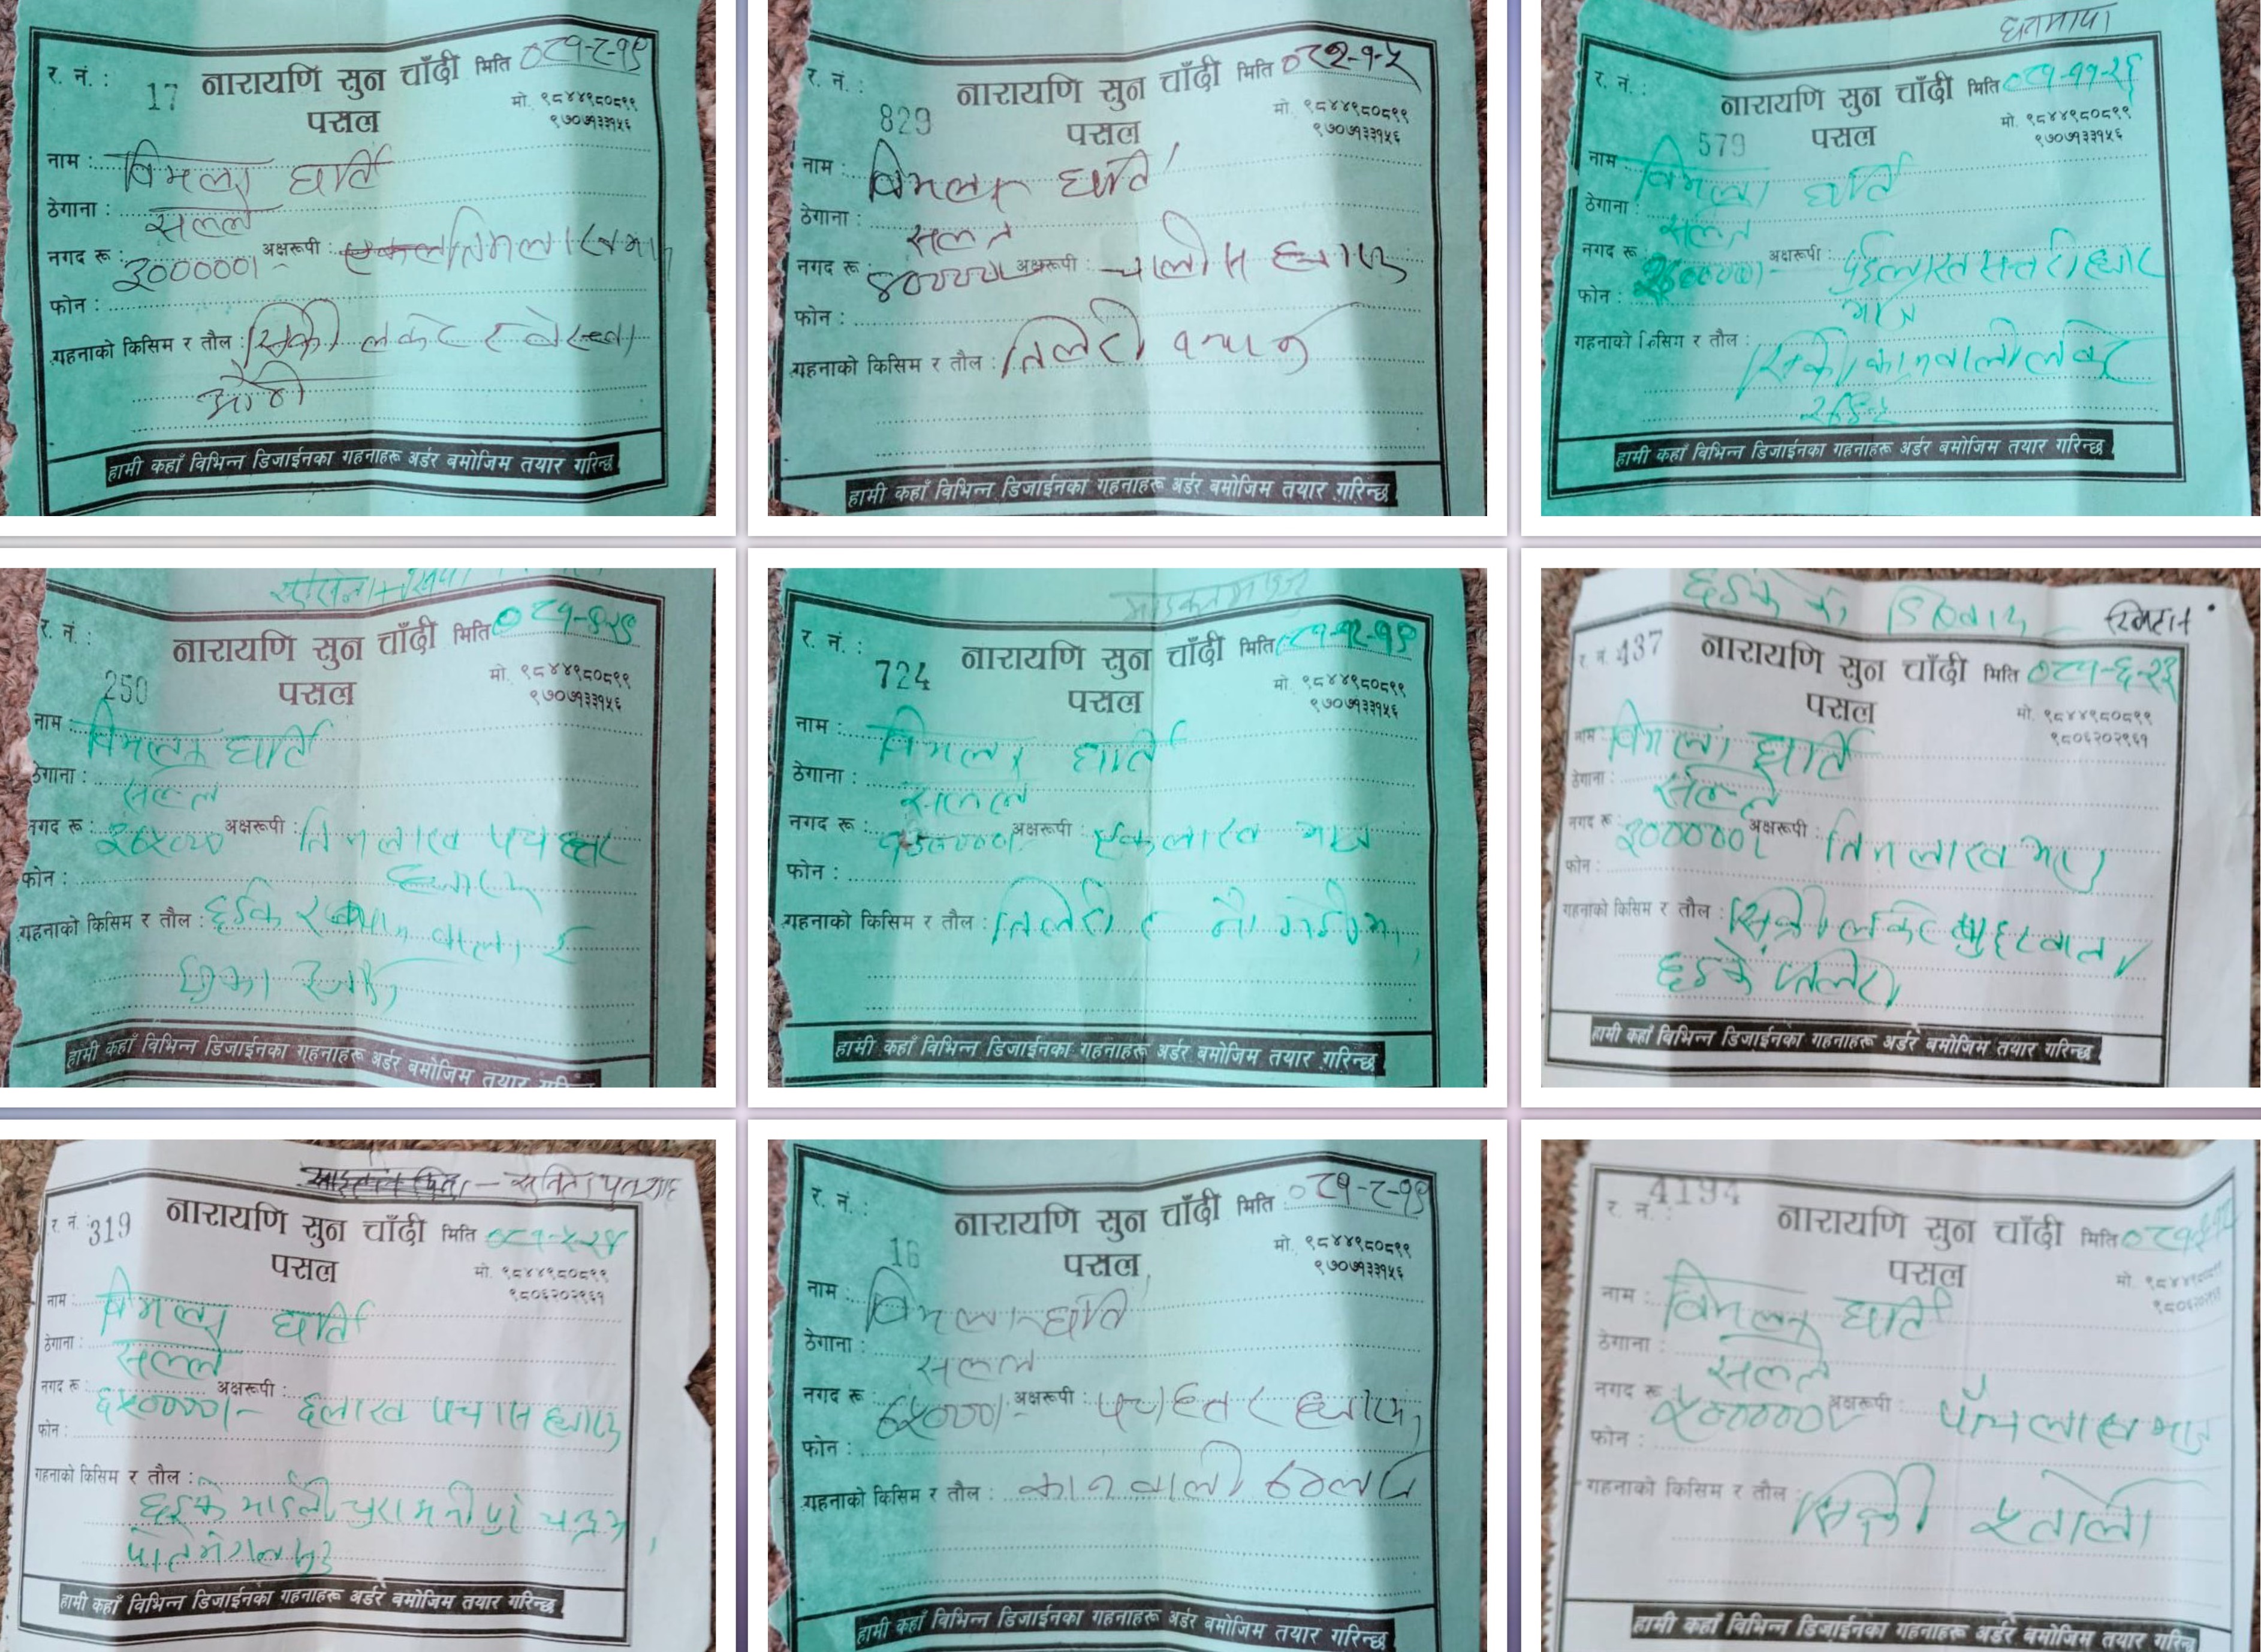 र. नं. : 17 नारायणि सुन चाँदी मिति ०८१-८-१९
पसल
मो. ९८४४९८०८९९
९७०७१३३१५६
नाम : विमला घर्ति
ठेगाना : सल्ले
नगद रू : ३०००००। अक्षरूपी : तिनलाख
फोन :
गहनाको किसिम र तौल : सिक्री लकेट र
औठी
हामी कहाँ विभिन्न डिजाईनका गहनाहरू अर्डर बमोजिम तयार गरिन्छ
र. नं. : 829 नारायणि सुन चाँदी मिति ०८२-१-५
पसल
मो. ९८४४९८०८९९
९७०७१३३१५६
नाम : विमला घर्ति
ठेगाना : सल्ले
नगद रू : अक्षरूपी : चालीस
फोन :
गहनाको किसिम र तौल : तिलरी
हामी कहाँ विभिन्न डिजाईनका गहनाहरू अर्डर बमोजिम तयार गरिन्छ
धनमाया
र. नं. : 579 नारायणि सुन चाँदी मिति ०८१-११-२६
पसल
मो. ९८४४९८०८९९
९७०७१३३१५६
नाम विमला घर्ति
ठेगाना : सल्ले
नगद रू : अक्षरूपी :
फोन :
गहनाको किसिम र तौल : सिक्री कानवाली लकेट
हामी कहाँ विभिन्न डिजाईनका गहनाहरू अर्डर बमोजिम तयार गरिन्छ
र. नं. : 250 नारायणि सुन चाँदी मिति
पसल
मो. ९८४४९८०८९९
९७०७१३३१५६
नाम : विमला घर्ति
ठेगाना : सल्ले
नगद रू : अक्षरूपी : तिनलाख
फोन :
गहनाको किसिम र तौल : छड्के
हामी कहाँ विभिन्न डिजाईनका गहनाहरू अर्डर बमोजिम तयार
र. नं. : 724 नारायणि सुन चाँदी मिति ०८१-१२-१९
पसल
मो. ९८४४९८०८९९
९७०७१३३१५६
नाम : विमला घर्ति
ठेगाना : सल्ले
नगद रू : अक्षरूपी : एकलाख मात्र
फोन :
गहनाको किसिम र तौल : तिलरी र
हामी कहाँ विभिन्न डिजाईनका गहनाहरू अर्डर बमोजिम तयार गरिन्छ
र. नं. 437 नारायणि सुन चाँदी मिति ०८१-६-२३
पसल
मो. ९८४४९८०८९९
९८०६२०२९६१
नाम : विमला घर्ति
ठेगाना : सल्ले
नगद रू : ३०००००। अक्षरूपी : तिनलाख मात्र
फोन :
गहनाको किसिम र तौल : सिक्री लकेट
छड्के तिलरी
हामी कहाँ विभिन्न डिजाईनका गहनाहरू अर्डर बमोजिम तयार गरिन्छ
र. नं. : 319 नारायणि सुन चाँदी मिति ०८१-५-२४
पसल
मो. ९८४४९८०८९९
९८०६२०२९६१
नाम : विमला घर्ति
ठेगाना : सल्ले
नगद रू : ६५००००।- अक्षरूपी : ६लाख पचास
फोन :
गहनाको किसिम र तौल :
छड्के
हामी कहाँ विभिन्न डिजाईनका गहनाहरू अर्डर बमोजिम तयार गरिन्छ
र. नं. : 16 नारायणि सुन चाँदी मिति : ०८१-८-१९
पसल
मो. ९८४४९८०८९९
९७०७१३३१५६
नाम : विमला घर्ति
ठेगाना : सल्ले
नगद रू : अक्षरूपी : पचहतर
फोन :
गहनाको किसिम र तौल : कानवाली
हामी कहाँ विभिन्न डिजाईनका गहनाहरू अर्डर बमोजिम तयार गरिन्छ
र. नं. : 4194 नारायणि सुन चाँदी मिति
पसल
नाम : विमला घर्ति
ठेगाना : सल्ले
नगद रू : ५००००० अक्षरूपी : पाँचलाख मात्र
फोन :
गहनाको किसिम र तौल : सिक्री ५ तोला
हामी कहाँ विभिन्न डिजाईनका गहनाहरू अर्डर बमोजिम तयार